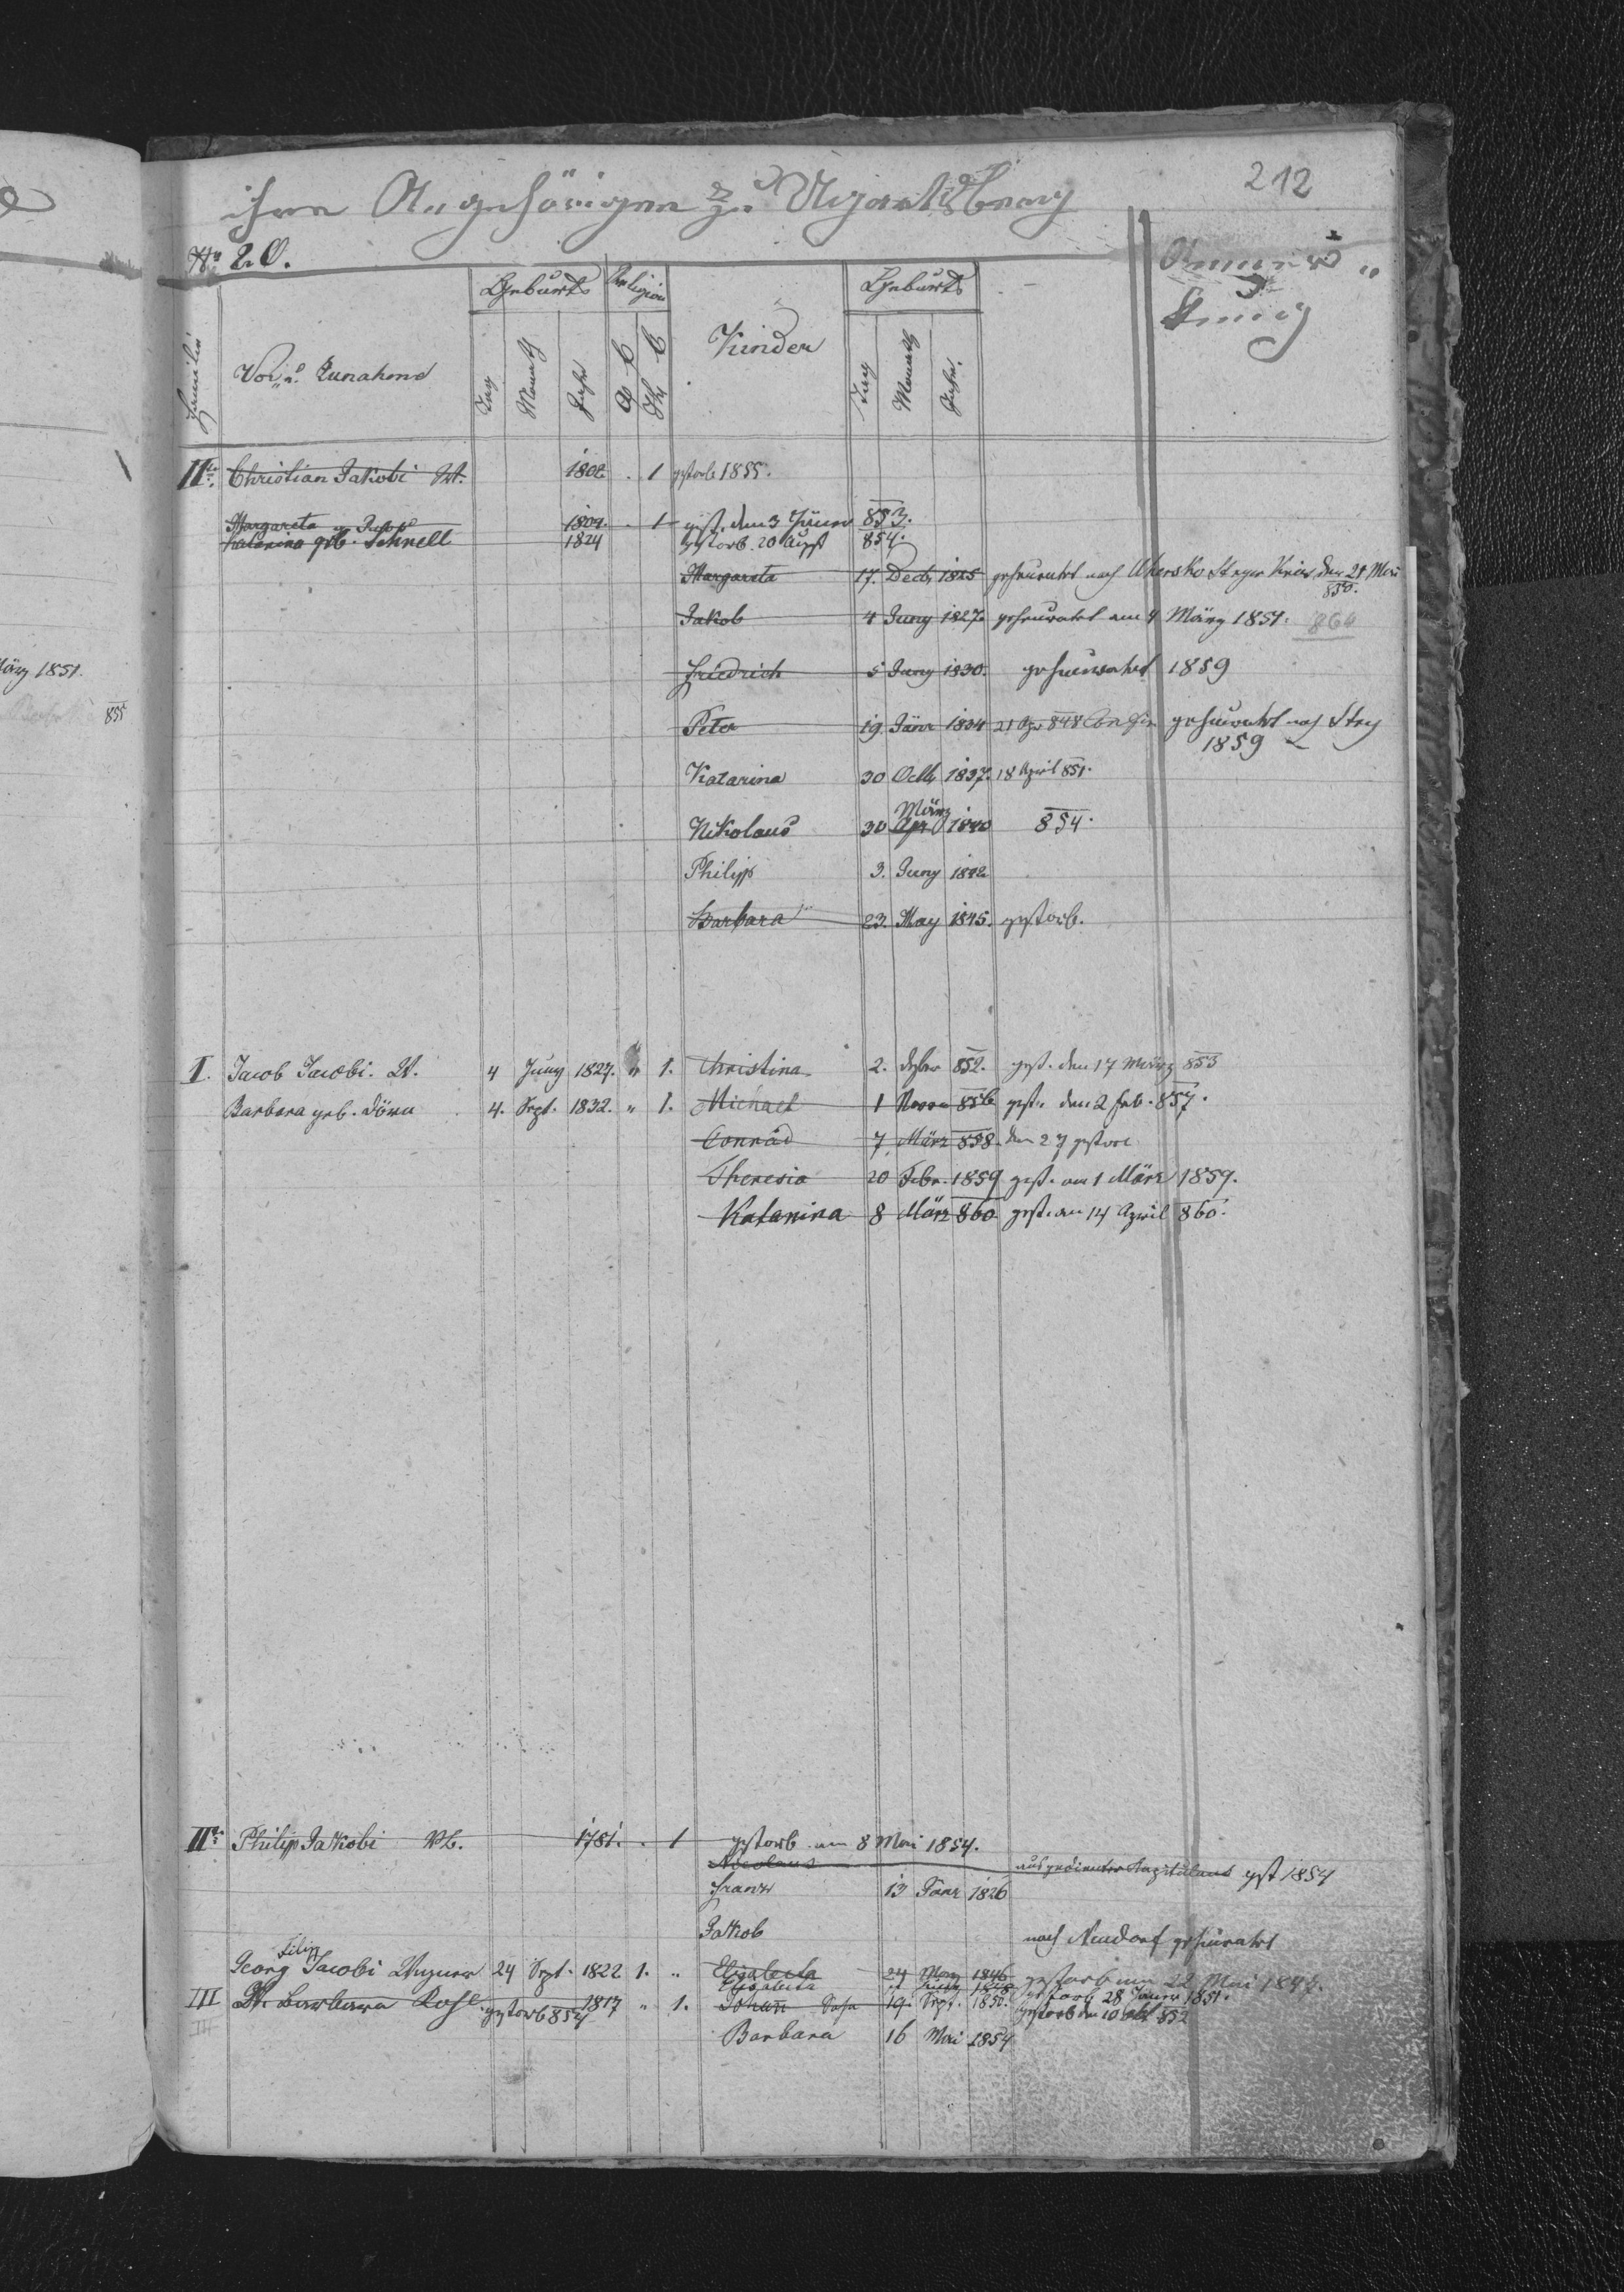 212
ihren Angehörigen zu Ugartsberg
No 20.
Geburts Religion Geburts
Familie Vor u. Zunahme Tag Monath Jahr Kinder Tag Monath Jahr.
IIte. Christian Jakobi W. 1802 . 1 gestorb 1855.
Margareta 1804. . 1 gest. den 3 Jäner 853.
Katarina geb. Schnell 1824 gestorb. 20 Augst 854.
Margareta 17. Decb 1825 geheurahtet nach den 28 Mai
850.
Jakob 4 Juny 1827 geheurahtet am 4 März 1851. 864
Friedrich 5 Juny 1830. geheurahtet 1859
Peter 19. Jänr 1834 21 848 geheurahtet nach Stry
1859
Katarina 30 Octb 1837. 18 April 851.
März
Nikolaus 30 Apr 1840 854.
Philipp 3. Juny 1842
Barbara 23. May 1845. gestorb.
März 1851.
855
I. Jacob Jacobi. W. 4 Juny 1827. " 1. Christina 2. 852. gest. den 17 März 853
Barbara geb. 4. Sept. 1832. " 1. Michael 1 856 gest. den 2 Feb. 857.
Conrad 7. März 858. den 27 gestorb
Theresia 20 Febr. 1859 gest. am 1 März 1859.
Katarina 8 März 860. gest. am 14 April 860.
IIte Philip Jakobi 1781. . 1 gestorb am 8 Mai 1854.
Nicolaus ausgedienter Kapitulant gest 1854
Franz 13 Janr 1826
Jakob nach Neudorf geheurahtet
Filip
Georg Jacobi Wagner 24 Sept. 1822 1. " Elisabeta 27 May 1846 gestorb am 22 Mai 1847.
Elisabeta gestorb 28 Jäner 1851.
III W. Barbara 1817 " 1. Johann 19. Sept. 1850. gestorb den 10 852
gestorb 854
III
Barbara 16 Mai 1854